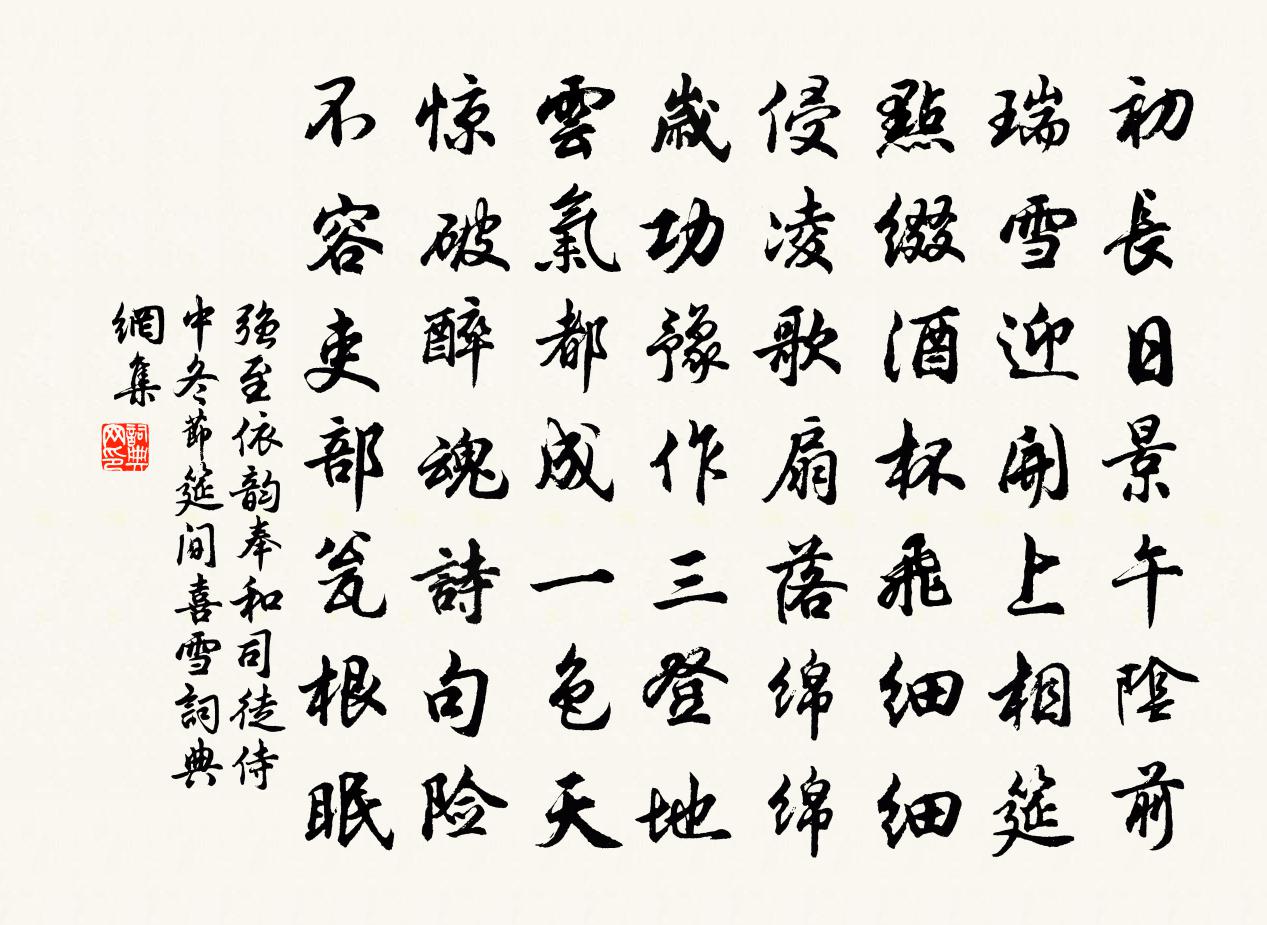 初長日景午陰前
瑞雪迎開上相筵
點缀酒杯飛细细
侵凌歌扇落绵绵
歲功豫作三登地
雲氣都成一色天
惊破醉魂詩句险
不容吏部瓮根眠
強至依韵奉和司徒侍
中冬節筵间喜雪詞典
網集
詞典網印